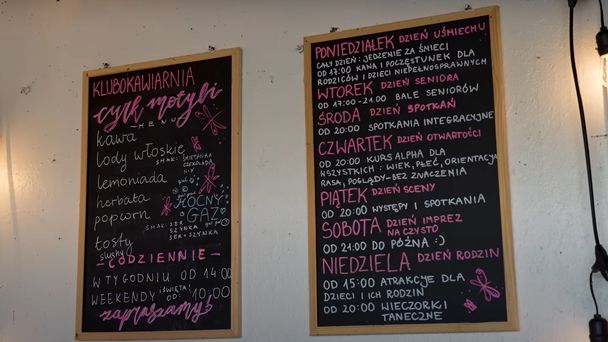 KLUBOKAWIARNIA
cyrk motyli
MENU
kawa
lody włoskie
SMAK: ŚMIETANKA
CZEKOLADA
MIX
lemoniada
herbata
MOCNY
GAZ
popcorn
SMAK: SER
SZYNKA
SER+SZYNKA
tosty
słuski
- CODZIENNIE -
W TYGODNIU OD 14:00
WEEKENDY I ŚWIĘTA OD: 10:00
zapraszamy!
PONIEDZIAŁEK DZIEŃ UŚMIECHU
CAŁY DZIEŃ: JEDZENIE ZA ŚMIECI
OD 17:00 KAWA I POCZĘSTUNEK DLA
RODZICÓW I DZIECI NIEPEŁNOSPRAWNYCH
WTOREK DZIEŃ SENIORA
OD 17:00-21:00 BALE SENIORÓW
ŚRODA DZIEŃ SPOTKAŃ
OD 20:00 SPOTKANIA INTEGRACYJNE
CZWARTEK DZIEŃ OTWARTOŚCI
OD 20:00 KURS ALPHA DLA
WSZYSTKICH: WIEK, PŁEĆ, ORIENTACJA
RASA, POGLĄDY-BEZ ZNACZENIA
PIĄTEK DZIEŃ SCENY
OD 20:00 WYSTĘPY I SPOTKANIA
SOBOTA DZIEŃ IMPREZ
NA CZYSTO
OD 21:00 DO PÓŹNA :)
NIEDZIELA DZIEŃ RODZIN
OD 15:00 ATRAKCJE DLA
DZIECI I ICH RODZIN
OD 20:00 WIECZORKI
TANECZNE